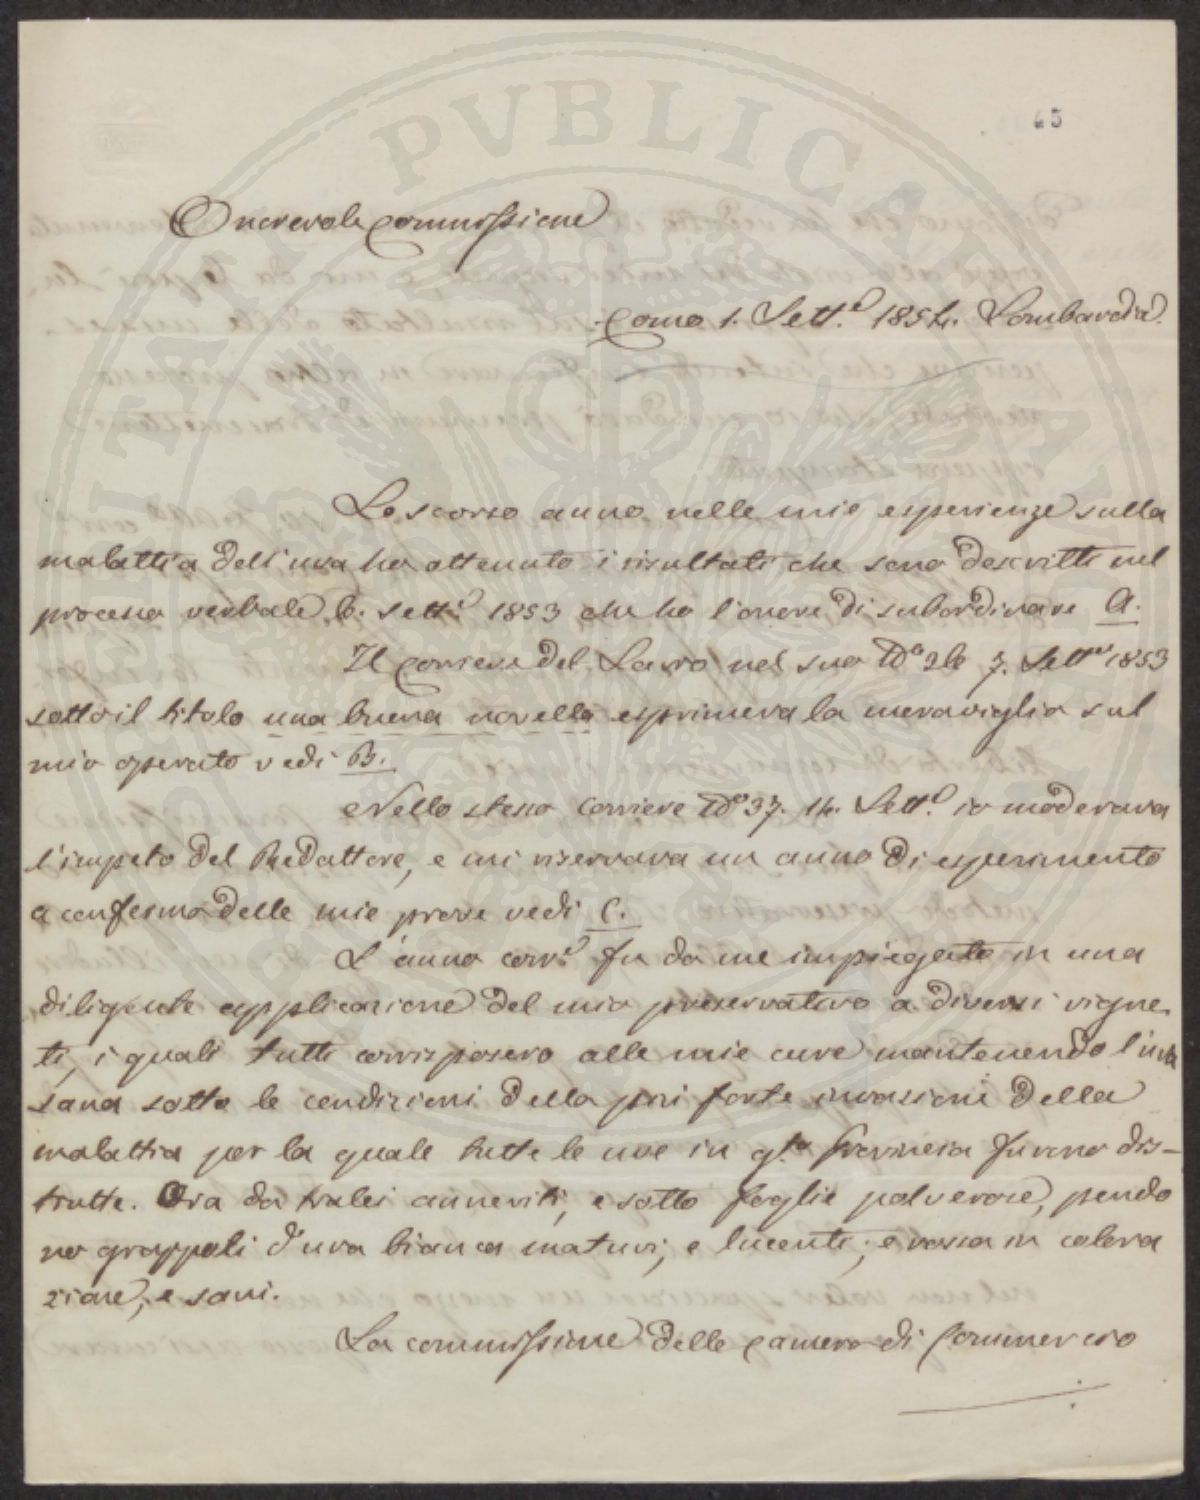 45
Onorevole Commissione
Como 1. Sett.e 1854. Lombardia.
Lo scorso anno nelle mie esperienze sulla
malattia dell'uva ho ottenuto i risultati che sono descritti nel
processo verbale 6. Sett.e 1853 che ho l'onore di subordinare A.
Il Corriere del Lario nel suo N.o 36 7. Sett.e 1853
sotto il titolo una buona novella esprimeva la meraviglia sul
mio operato vedi B.
Nello stesso Corriere N.o 37. 14. Sett.e io moderava
l'impeto del Redattore, e mi riservava un anno di esperimento
a conferma delle mie prove vedi C.
L'anno corr.e fu da me impiegato in una
diligente applicazione del mio preservativo a diversi vigne-
ti, i quali tutti corrisposero alle mie cure mantenendo l'uva
sana sotto le condizioni della più forte invasione della
malattia per la quale tutte le uve in q.ta Provincia furono dis-
trutte. Ora da tralci anneriti, e sotto foglie polverose, pendo
no grappoli d'uva bianca maturi, e lucenti; e rossa in colora
zione, e sani.
La commissione della Camera di Commercio